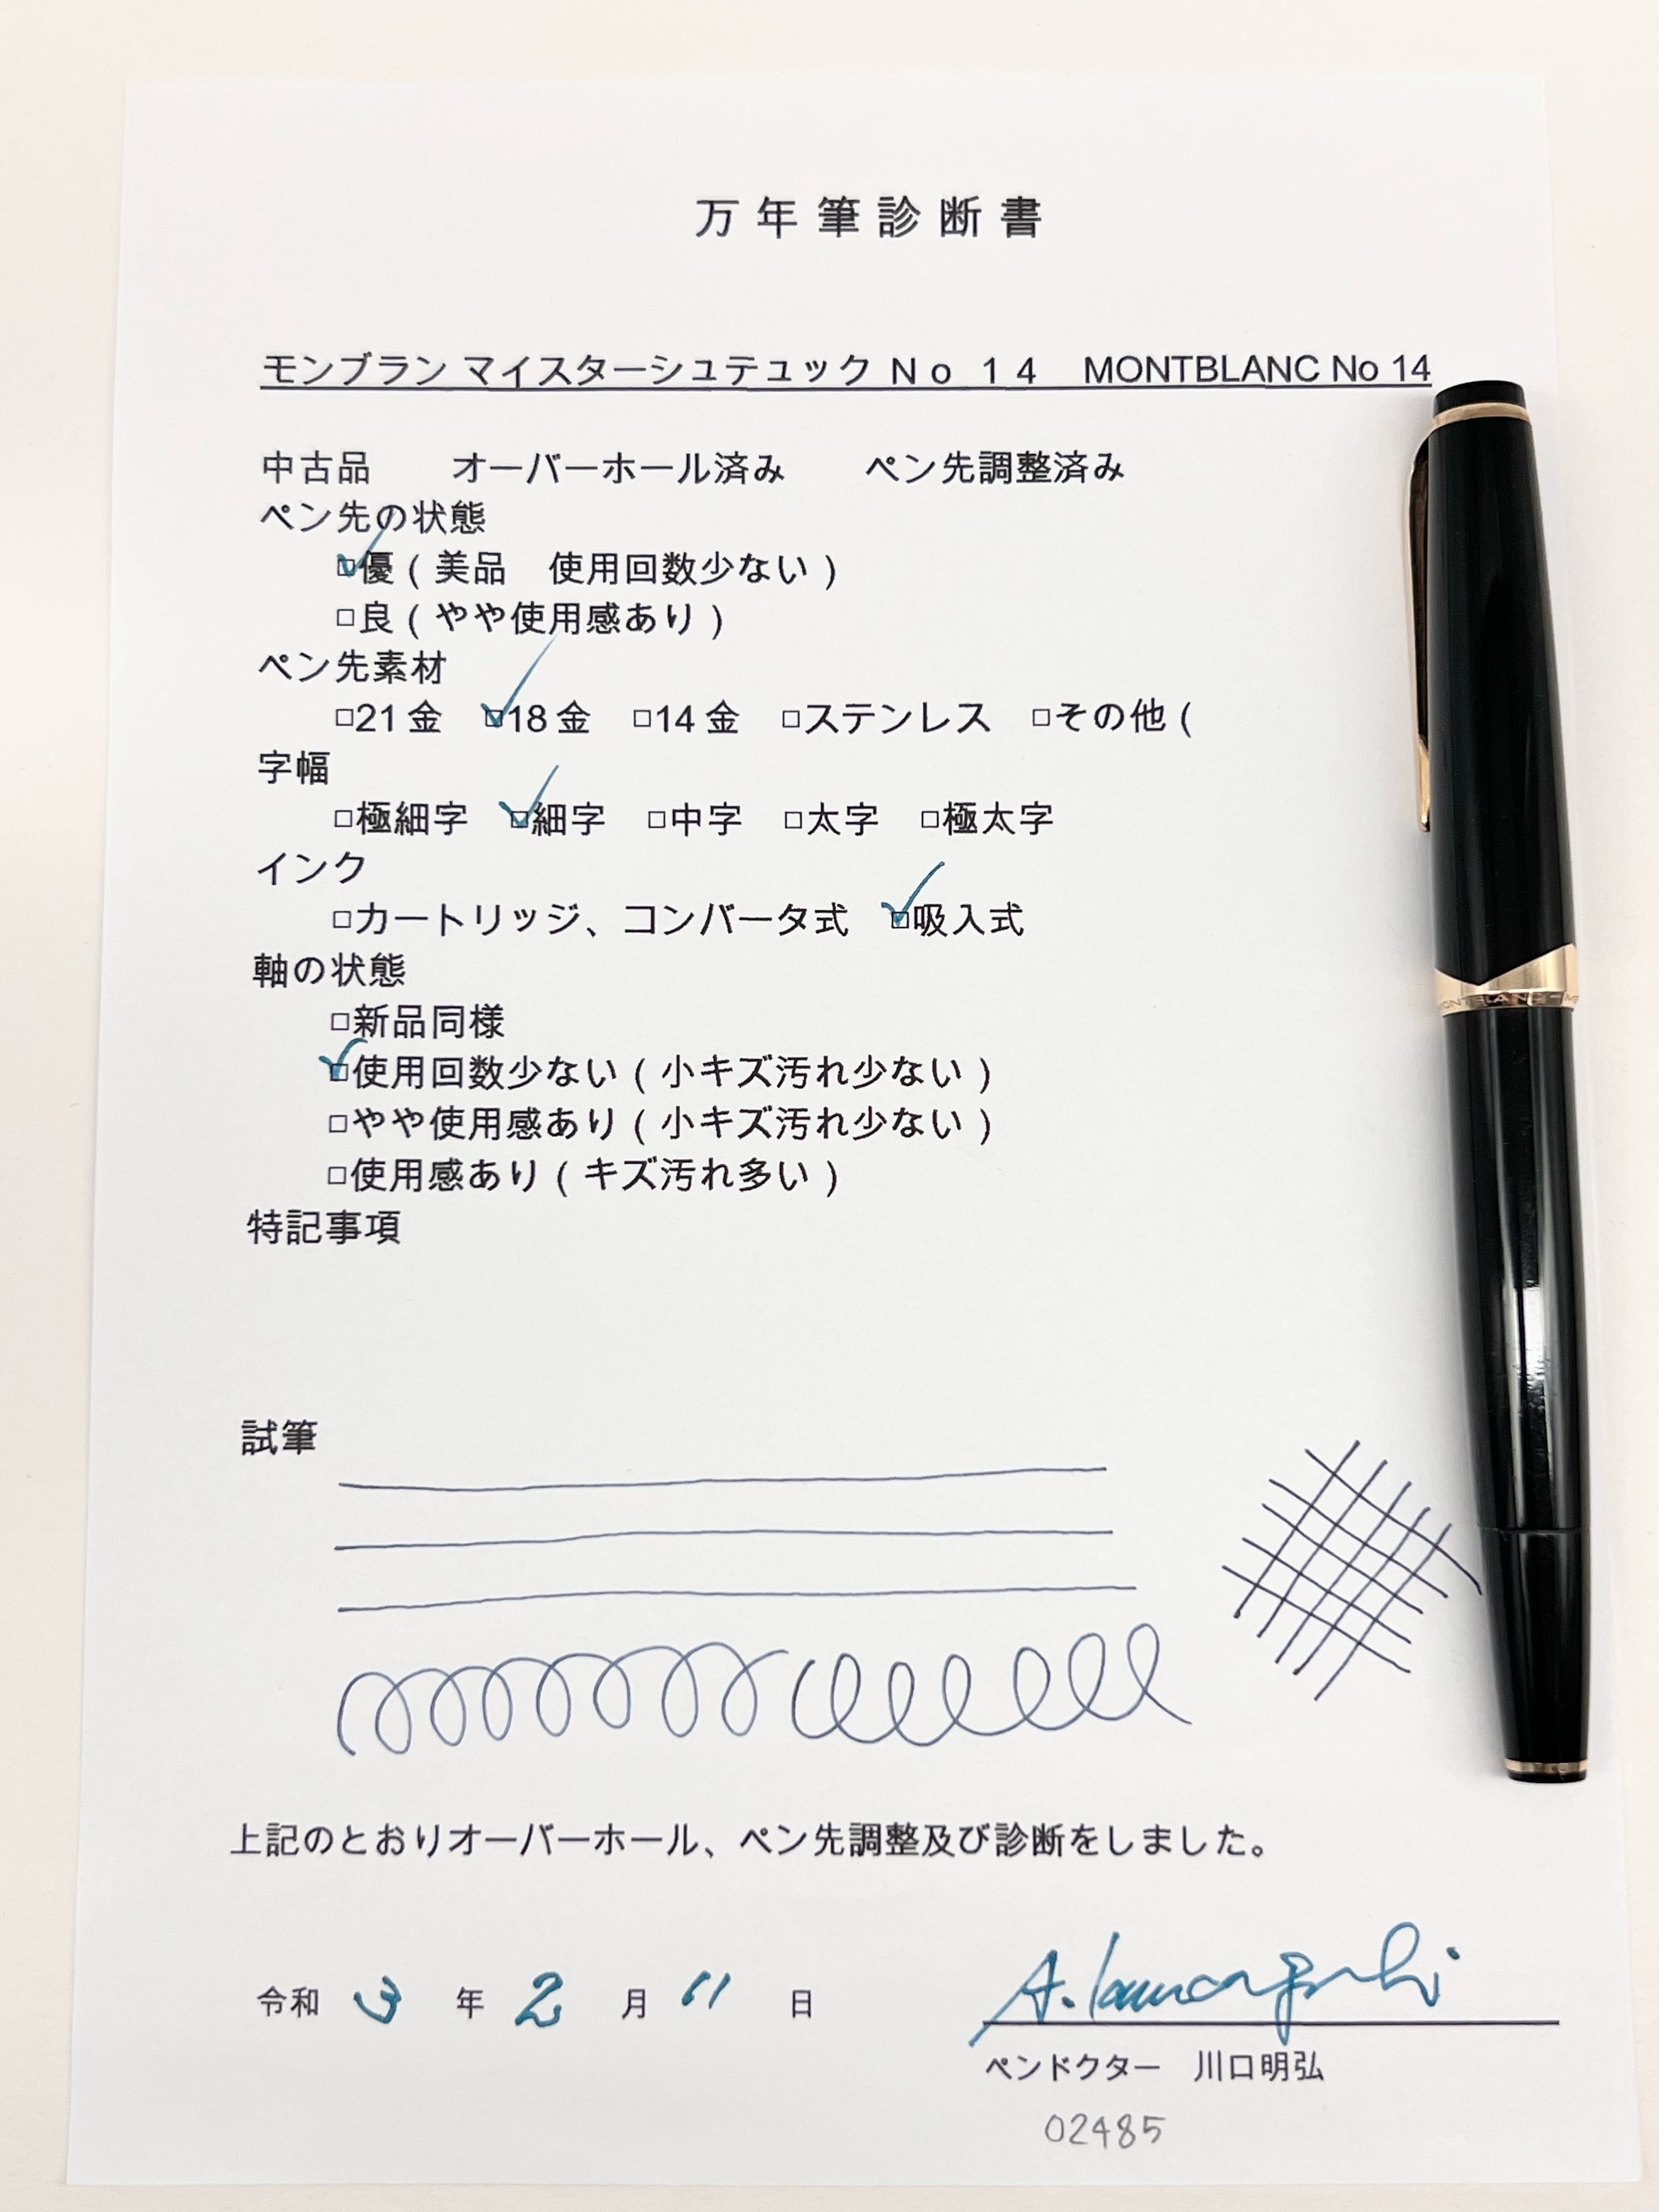 万年筆診断書
モンブラン マイスターシュテュック No 14 MONTBLANC No 14
中古品 オーバーホール済み ペン先調整済み
ペン先の状態
□優(美品 使用回数少ない)
□良(やや使用感あり)
ペン先素材
□21金 □18金 □14金 □ステンレス □その他(
字幅
□極細字 □細字 □中字 □太字 □極太字
インク
□カートリッジ、コンバータ式 □吸入式
軸の状態
□新品同様
□使用回数少ない(小キズ汚れ少ない)
□やや使用感あり(小キズ汚れ少ない)
□使用感あり(キズ汚れ多い)
特記事項
試筆
上記のとおりオーバーホール、ペン先調整及び診断をしました。
令和 3 年 2 月 11 日
A. Kawaguchi
ペンドクター 川口明弘
02485